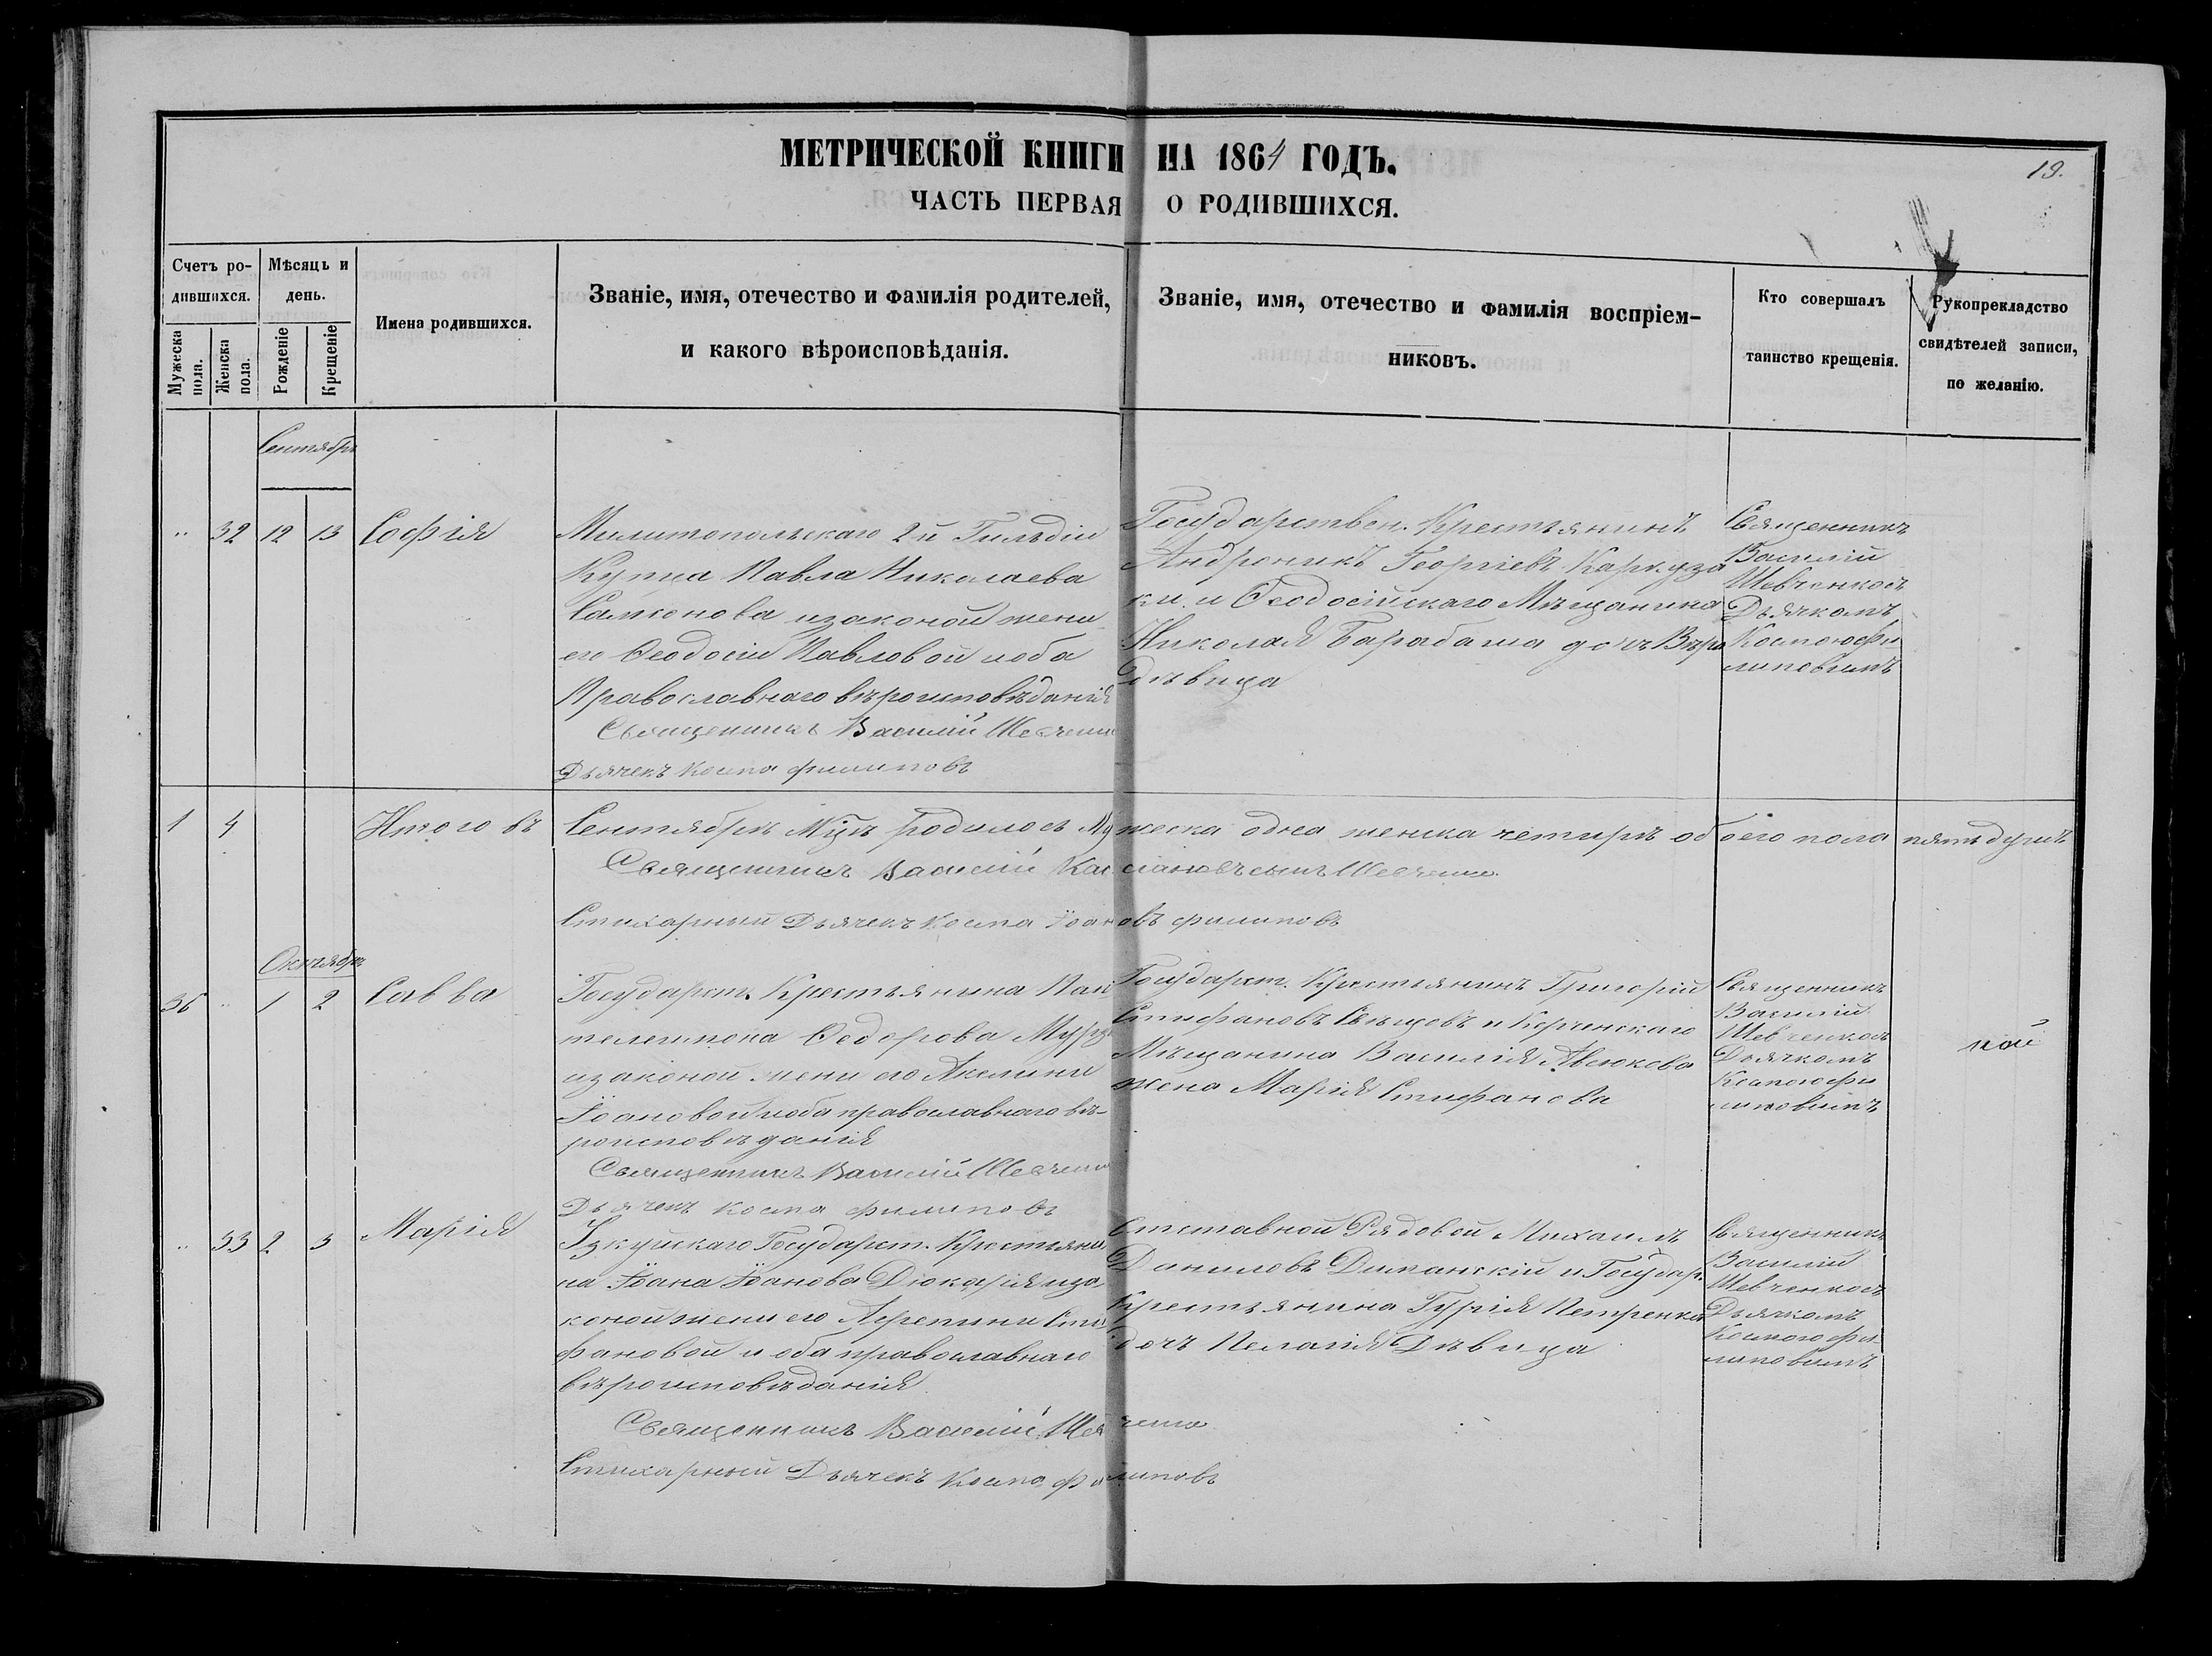 МЕТРИЧЕСКОЙ КНИГИ НА 1864 ГОДЪ.
19.
ЧАСТЬ ПЕРВАЯ О РОДИВШИХСЯ.
Счетъ родившихся.
Мужеска пола.
Женска пола.
Мѣсяць и день.
Рожденіе
Крещеніе
Имена родившихся.
Званіе, имя, отечество и фамилія родителей,
и какого вѣроисповѣданія.
Званіе, имя, отечество и фамилія воспріем-
никовъ.
Кто совершалъ
таинство крещенія.
Рукопрекладство
свидѣтелей записи,
по желанію.
Сентябрь
" 32 12 13 Софія
Милитопольскаго 2й Гильдіи
Купца Павла Николаева
изаконой жени
его Ѳеодосіи Павловой иоба
Православнаго вѣроисповѣданія
Священникъ Василій
Дьячекъ Косма Филиповъ
Государствен. Крестьянинъ
Андроникъ Георгіевъ
и Ѳеодосійскаго Мѣщанина
Николая Барабаша дочь Вѣра
дѣвица
Священникъ
Василій
Шевченкосъ
Дьячкомъ
Космою Фи
липовимъ
1 4 Итого въ Сентябрѣ родилось Мужеска одна женска четирѣ обоего пола пять душъ
Священникъ Василій
Стихарный Дьячекъ Косма Іоановъ Филиповъ
Октябрь
36 " 1 2 Савва
Государст. Крестьянина Пан
телеимона Ѳедорова
изаконой жени его Акелини
Іоановой иоба православнаго вѣ-
роисповѣданія
Священникъ Василій
Дьячекъ Косма Филиповъ
Государст. Крестьянинъ Григорій
Стифановъ и Керченскаго
Мѣщанина Василія
жена Марія Стифанова
Священникъ
Василій
Шевченкосъ
Дьячкомъ
Космою Фи
липовимъ
" 33 2 3 Марія
Государст. Крестьяни
на Іоана Іоанова иза
коной жени его Агрепини Сти
фановой и оба православнаго
вѣроисповѣданія.
Священникъ Василій
Стихарный Дьячекъ Косма Филиповъ
Отставной Рядовой Михаилъ
Даниловъ и Государ.
Крестьянина Гурія Петренка
дочь Пелагія Дѣвица
Священникъ
Василій
Шевченкосъ
Дьячкомъ
Космою Фи
липовимъ